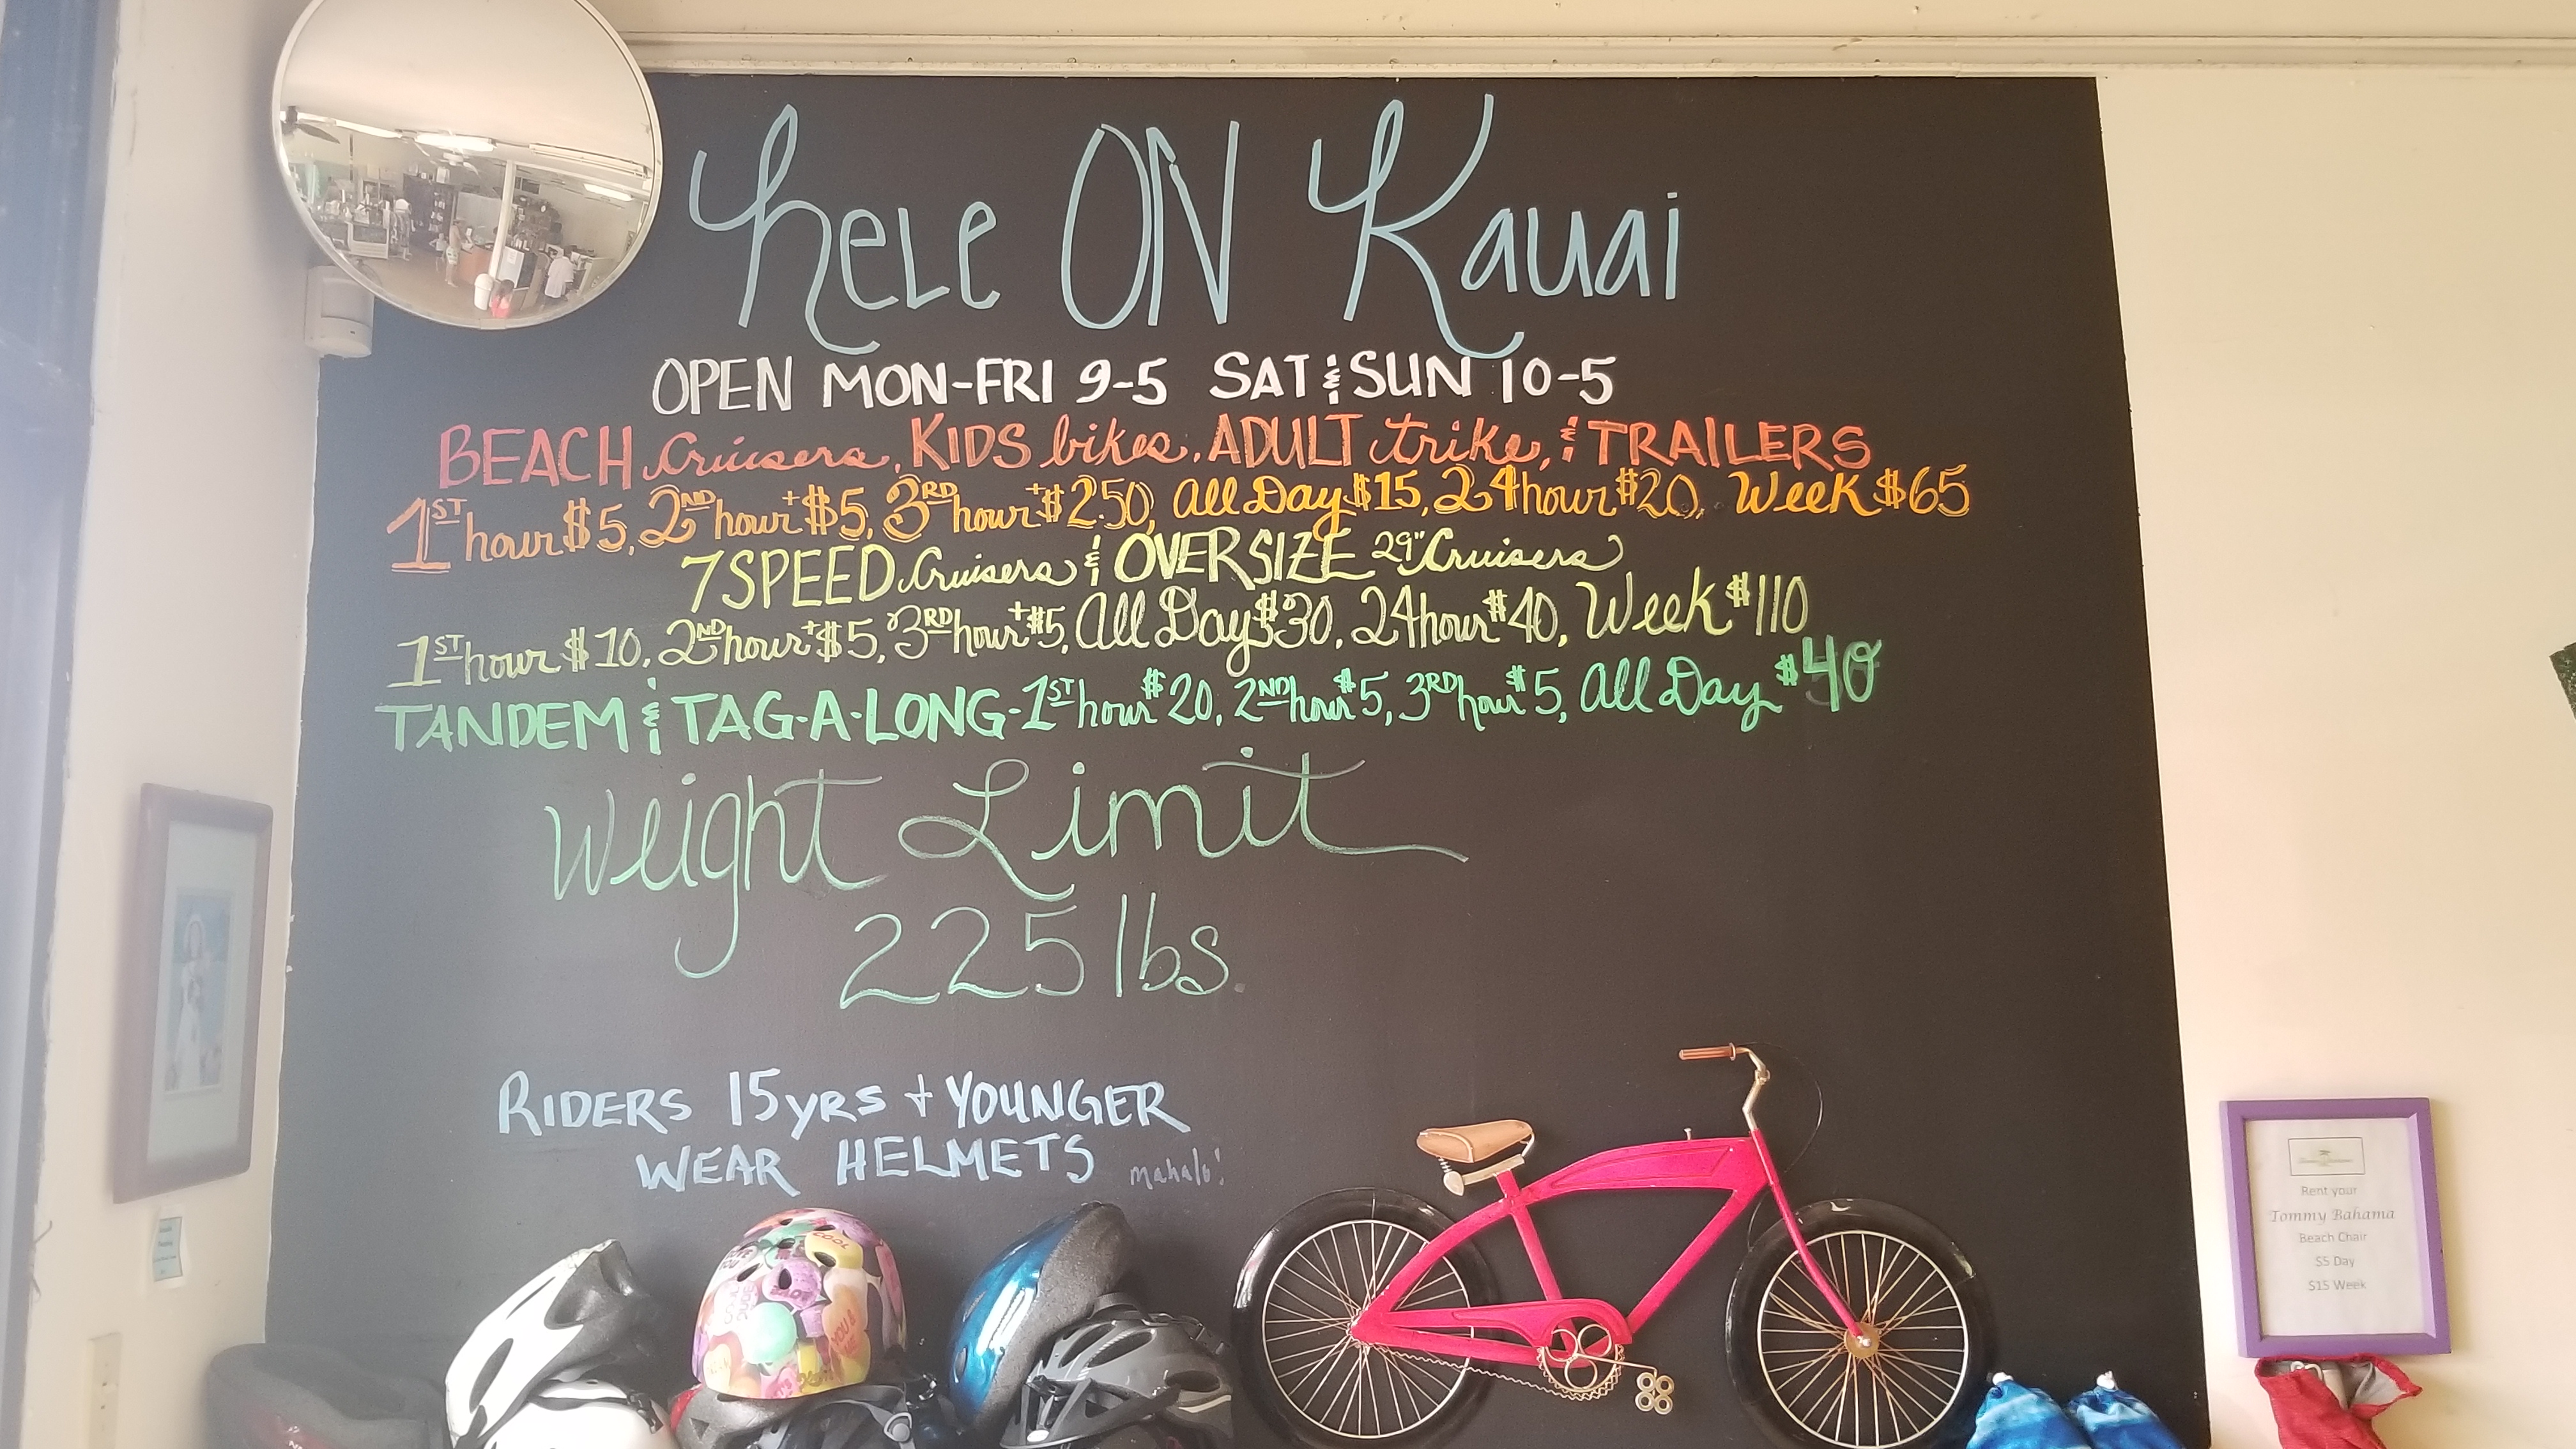 hele ON Kauai
OPEN MON-FRI 9-5 SAT & SUN 10-5
BEACH Cruisers, KIDS bikes, ADULT trike, & TRAILERS
1ST hour $5, 2ND hour +$5, 3RD hour +$2.50, All Day $15, 24 hour $20, Week $65
7 SPEED Cruisers & OVERSIZE 29" Cruisers
1ST hour $10, 2ND hour +$5, 3RD hour +$5, All Day $30, 24 hour $40, Week $110
TANDEM & TAG-A-LONG-1ST hour $20, 2ND hour $5, 3RD hour $5, All Day $40
Weight Limit
225 lbs.
RIDERS 15yrs + YOUNGER
WEAR HELMETS mahalo!
COOL
Rent your
Tommy Bahama
Beach Chair
$5 Day
$15 Week